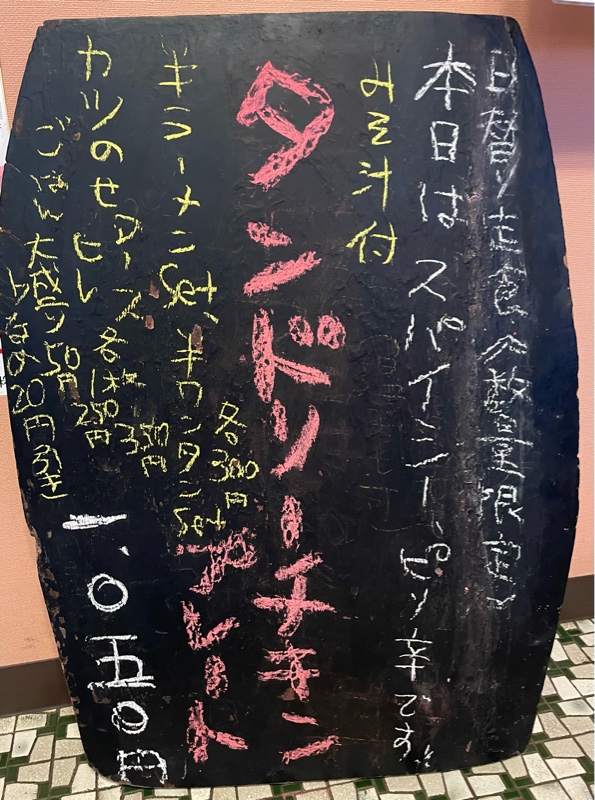 日替り定食〈数量限定〉
本日は スパイシー ピリ辛です!!
みそ汁付
タンドリーチキン
プレート
半ラーメンSet、半ワンタンSet
各300円
カツのせ ロース 各1枚 350円
ヒレ 250円
ごはん 大盛り 50円
少なめ 20円引き
一、〇五〇円